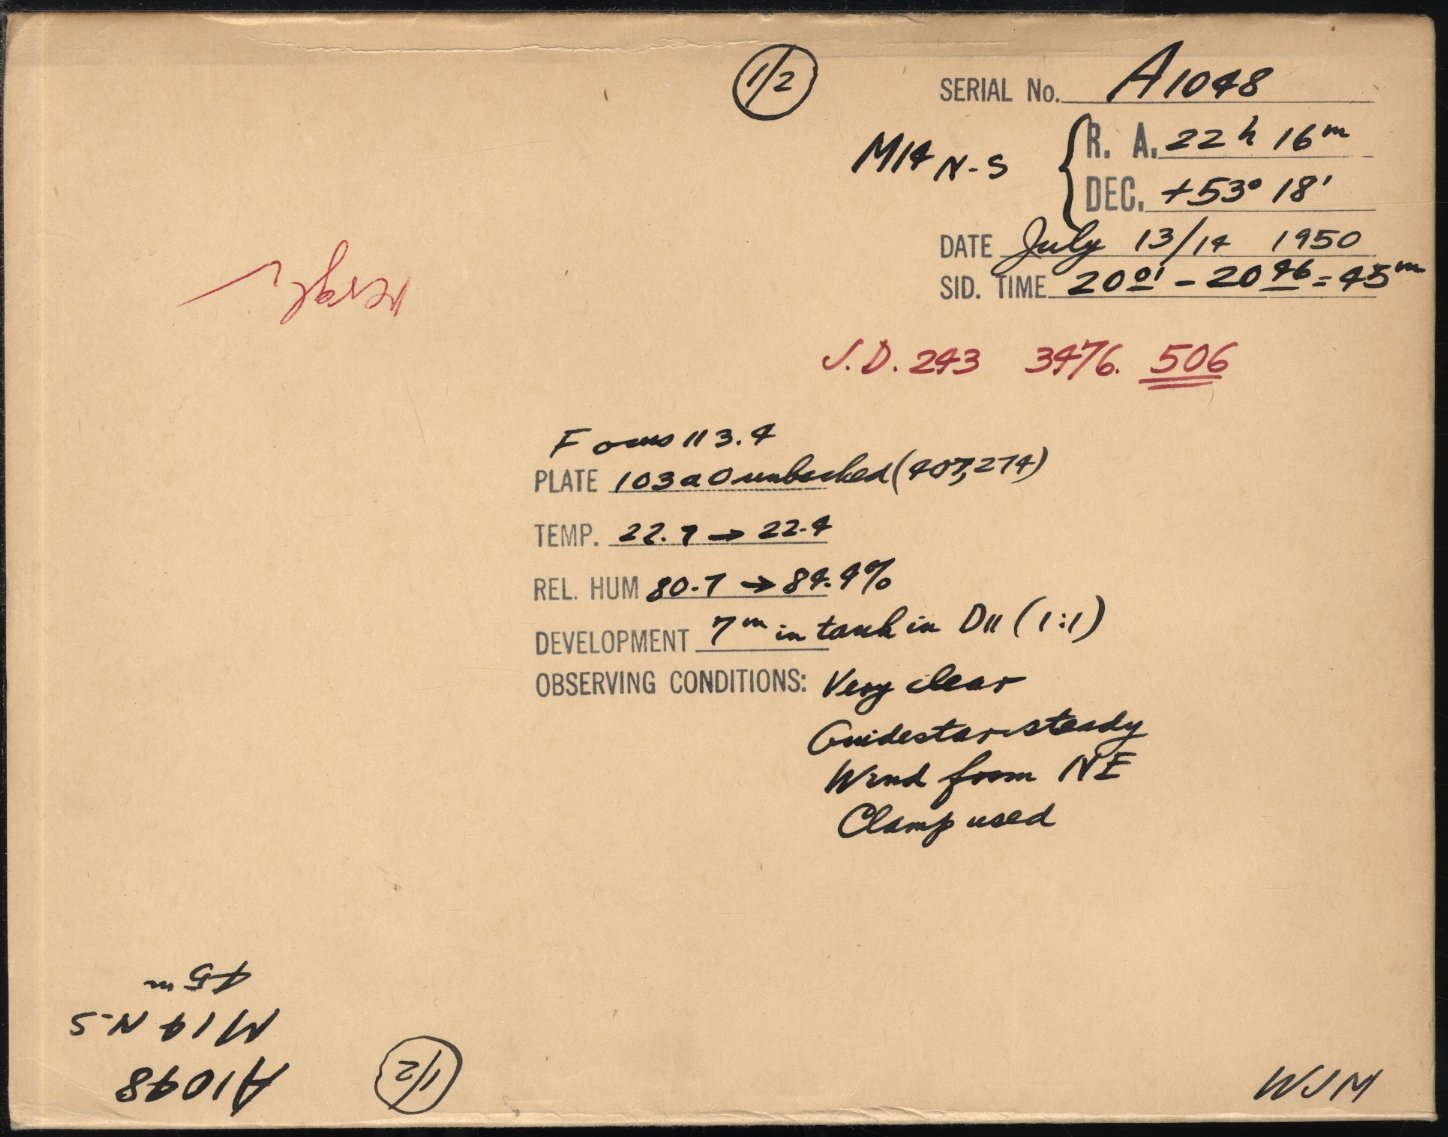 1/2
SERIAL No. A1048
M14 N-S
R. A. 22 h 16 m
DEC. +53° 18'
DATE July 13/14 1950
SID. TIME 20 01 - 20 46 = 45 m
J.D. 243 3476. 506
Focus 113.4
PLATE 103aO unbacked (407,274)
TEMP. 22.7 → 22.4
REL. HUM 80.7 → 84.4%
DEVELOPMENT 7 m in tank in D11 (1:1)
OBSERVING CONDITIONS: Very clear
Guidestar steady
Wind from NE
Clamp used
WJM
1/2
A1048
M14 N-S
45 m